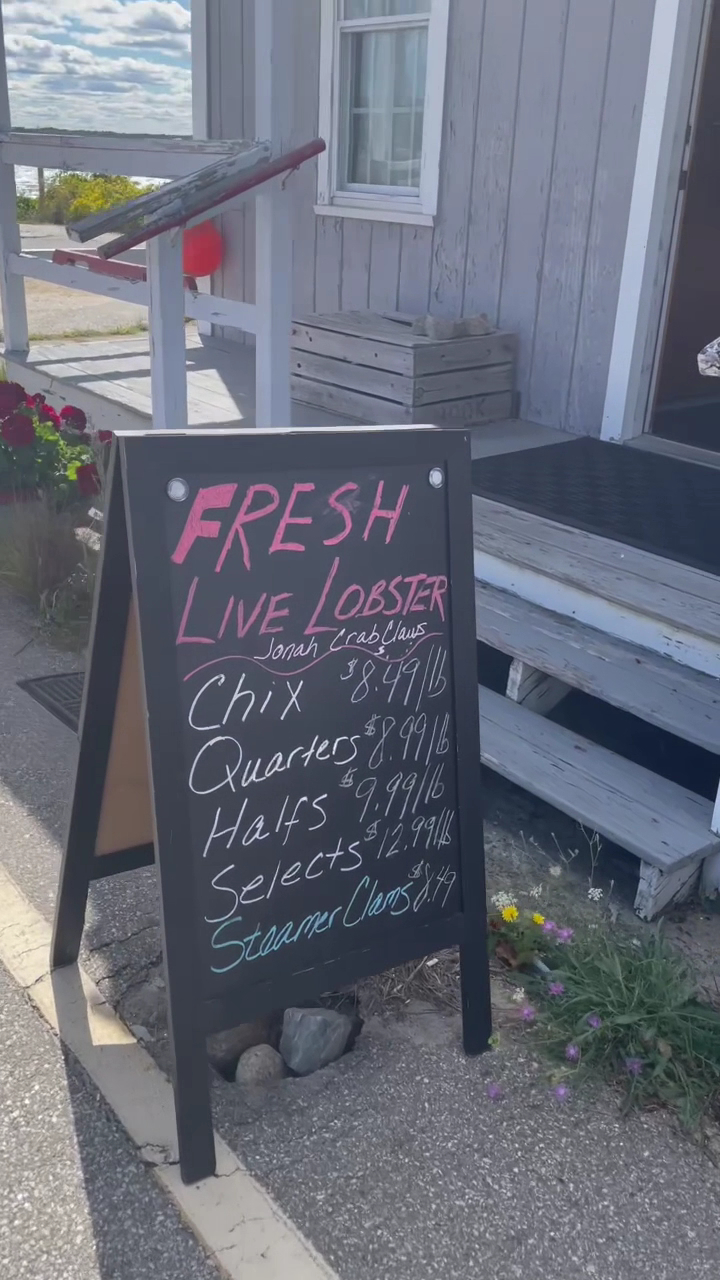 FRESH
LIVE LOBSTER
Jonah Crab Claws
Chix $8.49/lb
Quarters $8.99/lb
Halfs $9.99/lb
Selects $12.99/lb
Steamer Clams $8.49